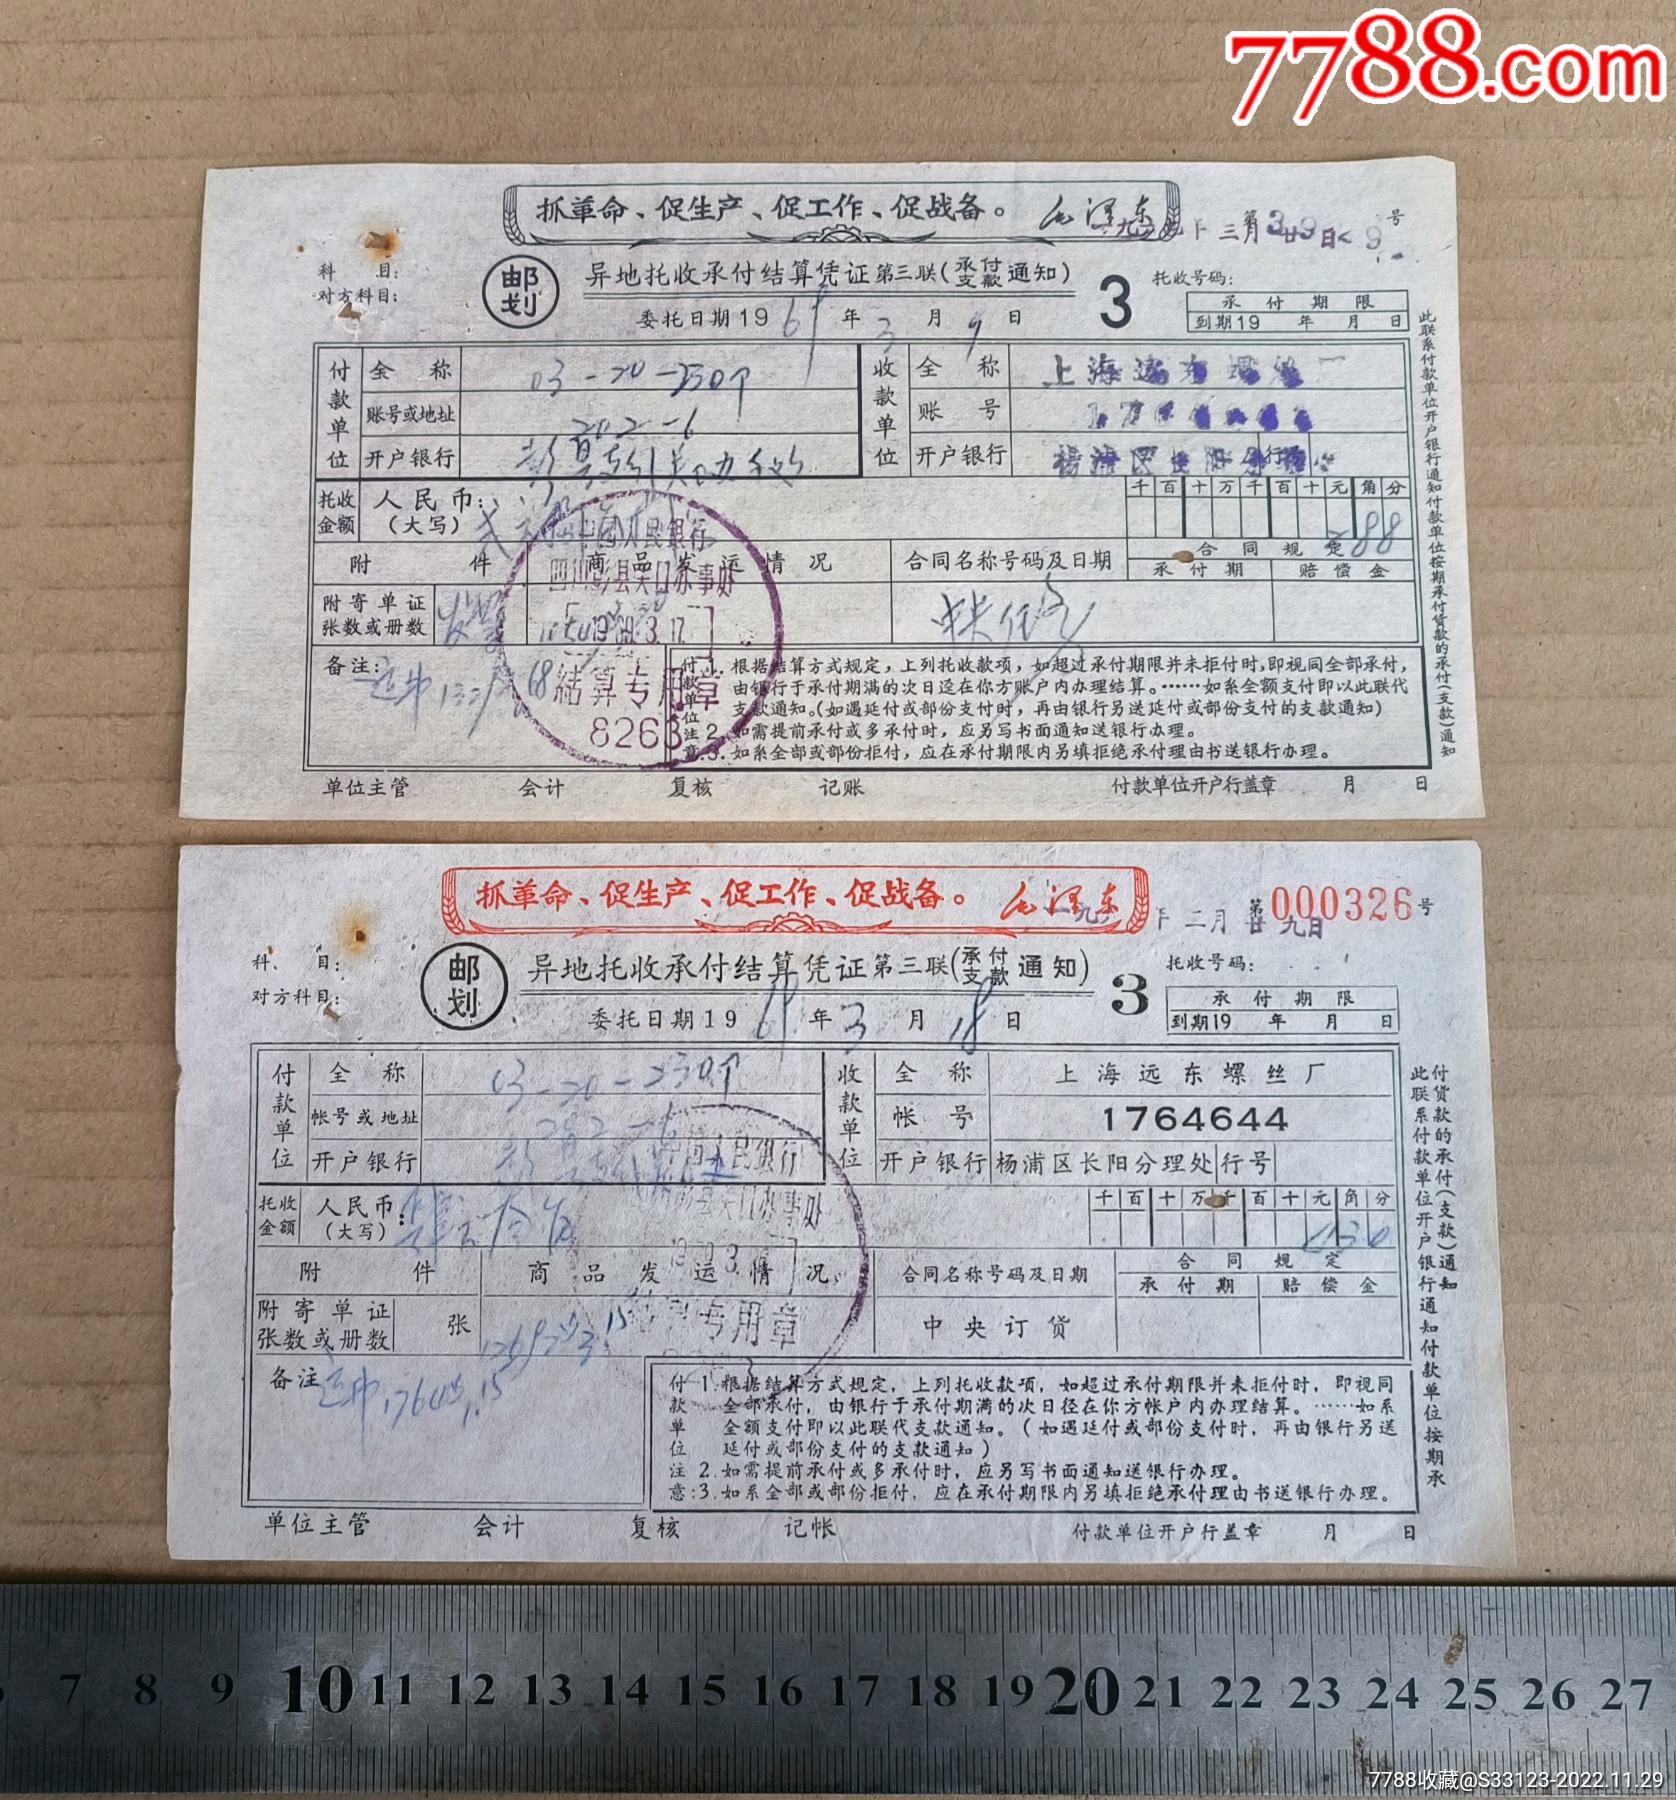 7788.com
抓革命、促生产、促工作、促战备。 毛泽东
三月
号
科 目:
对方科目:
邮划
异地托收承付结算凭证 第三联(承付支款通知)
委托日期1969年3月9日
3
托收号码:
承付期限
到期19 年 月 日
付款单位
全 称 03-20-230个
账号或地址 202-6
开户银行
收款单位
全 称 上海远东螺丝厂
账 号
开户银行 杨浦区长阳分 行号
托收金额
人民币:(大写)
千百十万千百十元角分
288
附 件
商品发运情况
合同名称号码及日期
合同规定
承付期 赔偿金
附寄单证张数或册数
备注:
中国人民银行
四川彭县关口办事处
1969.3.17
结算专用章
8263
付款单位注意:
1.根据结算方式规定,上列托收款项,如超过承付期限并未拒付时,即视同全部承付,
由银行于承付期满的次日迳在你方账户内办理结算。……如系全额支付即以此联代
支款通知。(如遇延付或部份支付时,再由银行另送延付或部份支付的支款通知)
2.如需提前承付或多承付时,应另写书面通知送银行办理。
3.如系全部或部份拒付,应在承付期限内另填拒绝承付理由书送银行办理。
此联系付款单位开户银行通知付款单位按期承付货款的承付(支款)通知
单位主管 会计 复核 记账 付款单位开户行盖章 月 日
抓革命、促生产、促工作、促战备。 毛泽东
第000326号
二月廿九日
科 目:
对方科目:
邮划
异地托收承付结算凭证 第三联(承付支款通知)
委托日期1969年3月18日
3
托收号码:
承付期限
到期19 年 月 日
付款单位
全 称 03-20-230个
帐号或地址 202-6
开户银行
收款单位
全 称 上海远东螺丝厂
帐 号 1764644
开户银行 杨浦区长阳分理处 行号
托收金额
人民币:(大写)
千百十万千百十元角分
附 件
商品发运情况
合同名称号码及日期
合同规定
承付期 赔偿金
附寄单证张数或册数 张
中央订货
备注
人民银行
彭县关口办事处
专用章
付款单位注意:
1.根据结算方式规定,上列托收款项,如超过承付期限并未拒付时,即视同
全部承付,由银行于承付期满的次日径在你方帐户内办理结算。……如系
全额支付即以此联代支款通知。(如遇延付或部份支付时,再由银行另送
延付或部份支付的支款通知)
2.如需提前承付或多承付时,应另写书面通知送银行办理。
3.如系全部或部份拒付,应在承付期限内另填拒绝承付理由书送银行办理。
此联系付款单位开户银行通知付款单位按期承
付货款的承付(支款)通知
单位主管 会计 复核 记帐 付款单位开户行盖章 月 日
7 8 9 10 11 12 13 14 15 16 17 18 19 20 21 22 23 24 25 26 27
7788收藏@S33123-2022.11.29